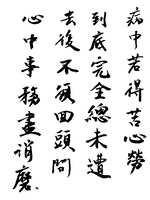 病中若得苦心勞
到底完全總未遭
去後不須回頭問
心中事務盡消磨